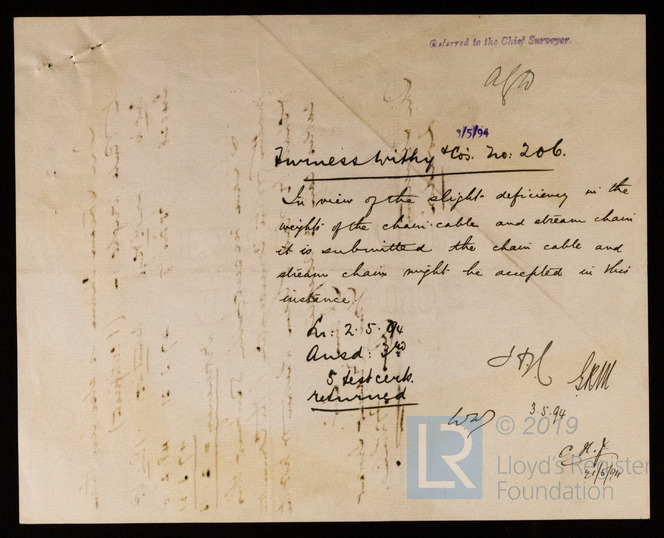 Referred to the Chief Surveyor.
3/5/94
Furness Withy & Co's. No: 206.
In view of the slight deficiency in the
weights of the chain cable and stream chain
it is submitted the chain cable and
stream chain might be accepted in this
instance.
Lr: 2.5.94
Ansd: 3rd
5 test certs.
returned
GRM
3.5.94
© 2019
LR
Lloyd's Register
Foundation